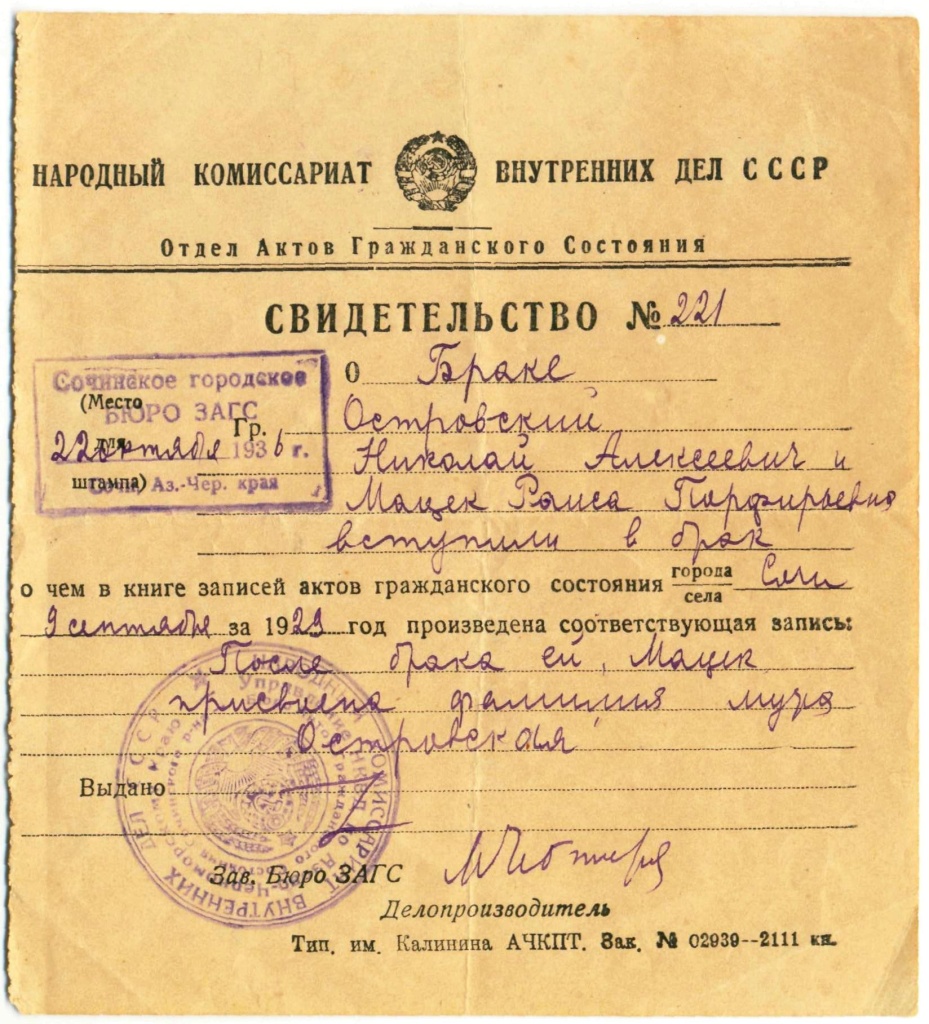 НАРОДНЫЙ КОМИССАРИАТ ВНУТРЕННИХ ДЕЛ СССР
Отдел Актов Гражданского Состояния
СВИДЕТЕЛЬСТВО № 221
Сочинское городское
БЮРО ЗАГС
22 октября 1936 г.
Сочи, Аз.-Чер. края
(Место
для
штампа)
О Браке
Гр. Островский
Николай Алексеевич и
Мацек Раиса Порфирьевна
вступили в брак
о чем в книге записей актов гражданского состояния города Сочи
села
9 сентября за 1929 год произведена соответствующая запись:
После брака ей, Мацек
присвоена фамилия мужа
Островская
Выдано
Зав. Бюро ЗАГС
Делопроизводитель
Тип. им. Калинина АЧКПТ. Зак. № 02939--2111 кн.
НАРОДНЫЙ КОМИССАРИАТ ВНУТРЕННИХ ДЕЛ СССР